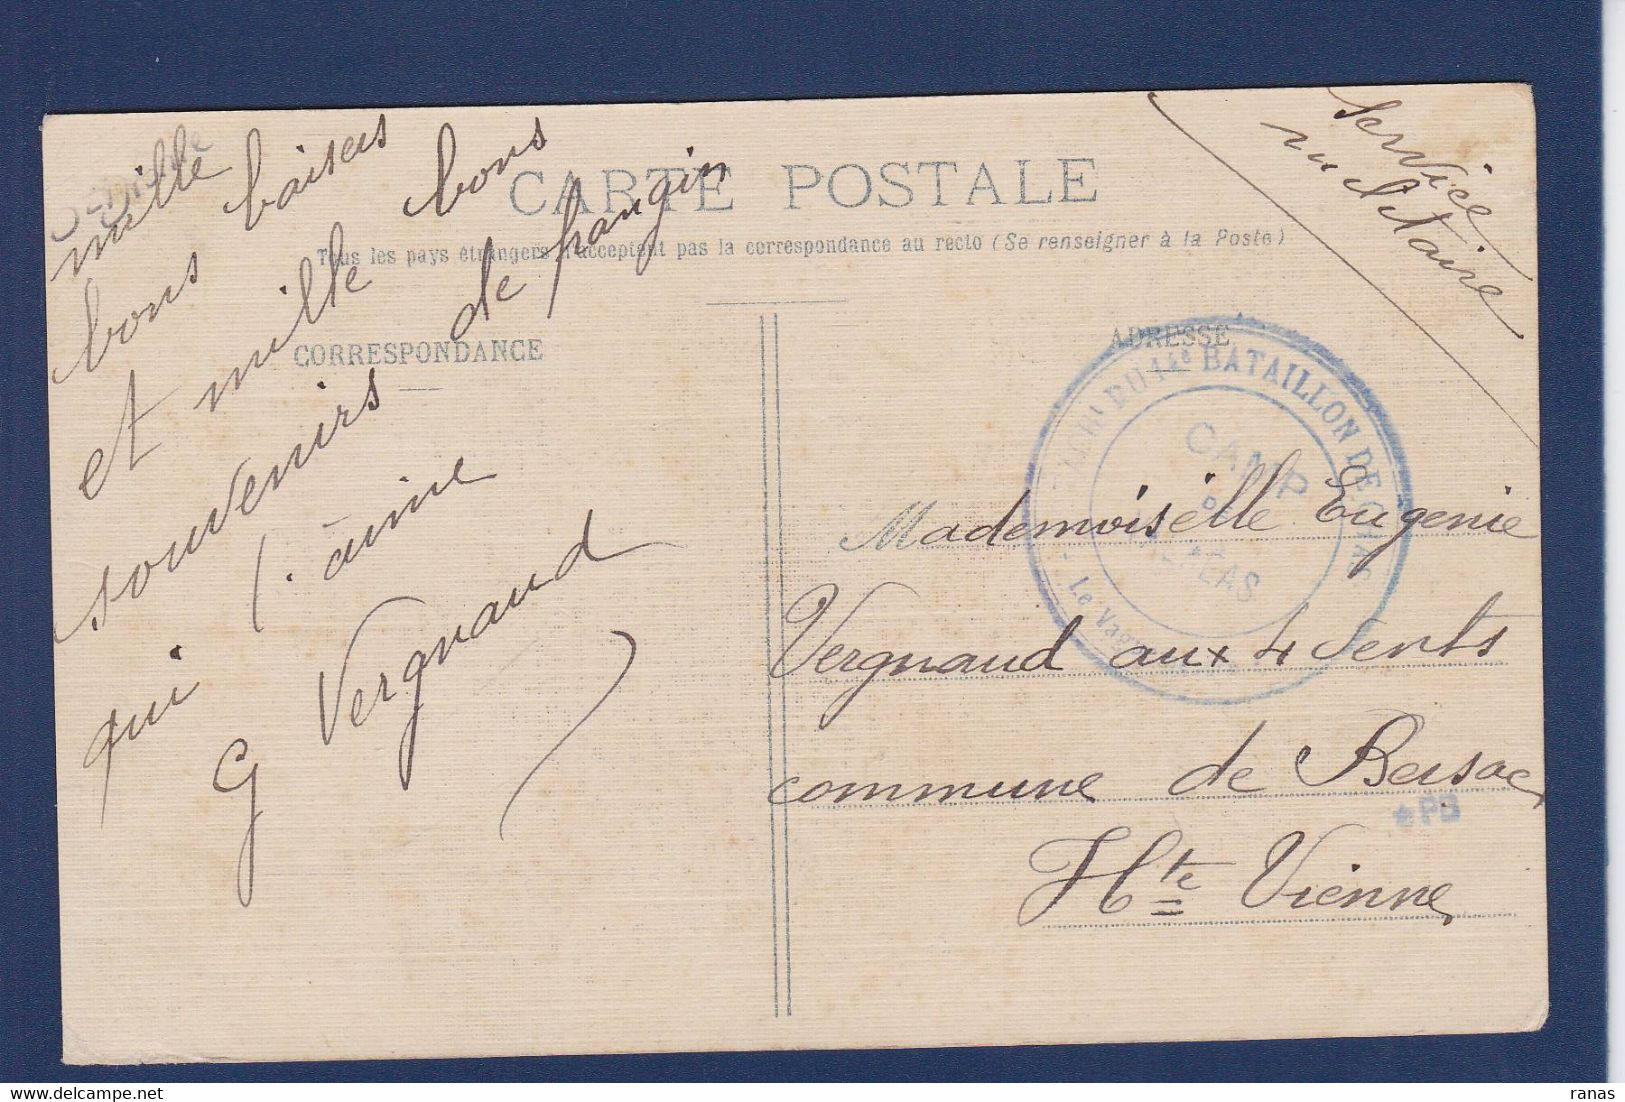 mille
bons baisers
et mille bons
souvenirs de frangin
qui l'aime
G Vergnaud
CARTE POSTALE
Tous les pays étrangers n'acceptent pas la correspondance au recto (Se renseigner à la Poste)
CORRESPONDANCE
ADRESSE
Service
militaire
14e BATAILLON DE CHAS
CAMP
DE
Mademoiselle Eugenie
Vergnaud aux 4 vents
commune de Bersac
Hte Vienne
PB
ranas